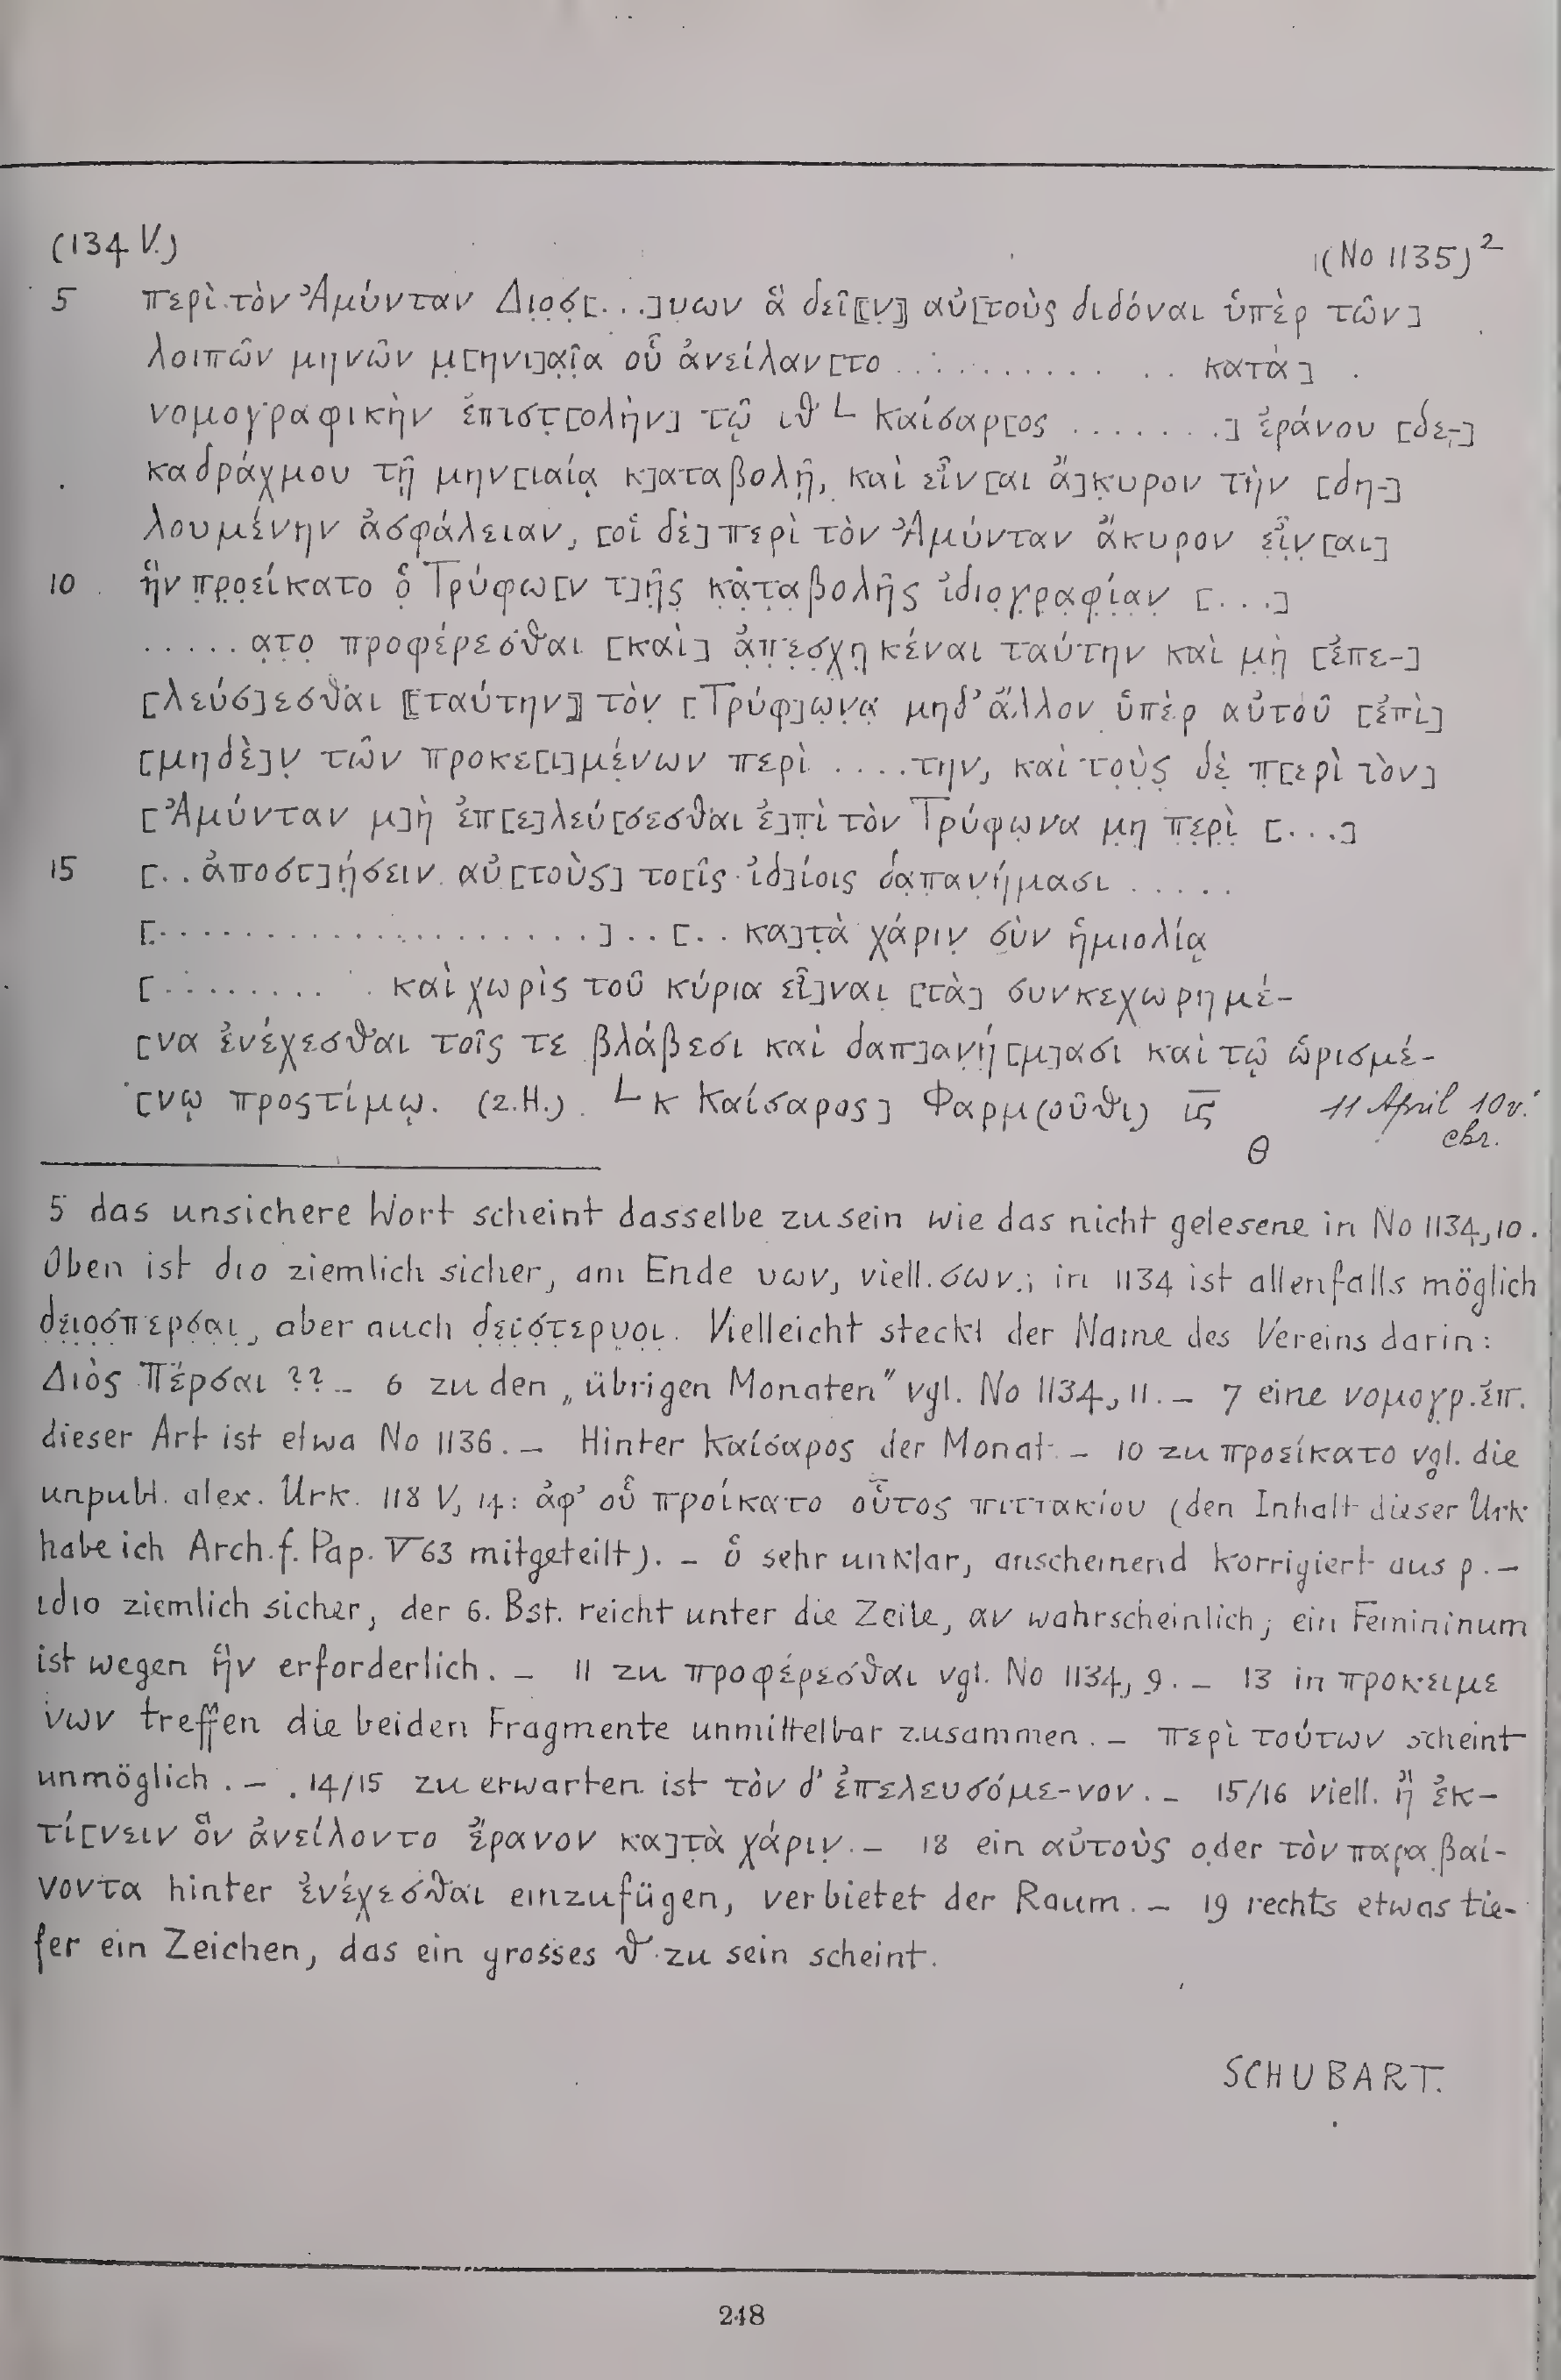 (134 V.)
(No 1135)²
5 περὶ τὸν Ἀμύνταν Διοσ̣[...]υων ἃ δεῖ⟦ν̣⟧ αὐ[τοὺς διδόναι ὑπὲρ τῶν]
λοιπῶν μηνῶν μ̣[ηνι]α̣ῖ̣α οὗ ἀνείλαν[το .......... .. κατὰ]
νομογραφικὴν ἐπιστ̣[ολὴν] τῷ ιθ L Καίσαρ[ος .......] ἐράνου [δε-]
καδράχμου τῇ μην[ιαίᾳ κ]αταβολῇ, καὶ εἶν[αι ἄ]κ̣υρον τὴν [δη-]
λουμένην ἀσφάλειαν, [οἱ δὲ] περὶ τὸν Ἀμύνταν ἄκυρον ε̣ἶ̣ν̣[αι]
10 ἣν π̣ρ̣ο̣είκατο ὁ̣ Τρύφω[ν τ]ῆ̣ς̣ κ̣α̣τ̣α̣βολῆς ἰδιο̣γ̣ρ̣α̣φ̣ί̣α̣ν̣ [...]
.....α̣τ̣ο̣ προφέρεσθαι [καὶ] ἀ̣π̣ε̣σ̣χ̣η̣κέναι ταύτην καὶ μ̣ὴ̣ [ἐπε-]
[λεύσ]εσθαι ⟦ταύτην⟧ τὸν̣ [Τρύφ]ω̣ν̣α̣ μηδ' ἄλλον ὑπὲρ αὐτοῦ [ἐπὶ]
[μηδὲ]ν̣ τῶν προκε[ι]μέ̣νων περὶ ....την, καὶ τ̣ο̣ὺ̣ς̣ δὲ̣ π̣[ερὶ τὸν]
[Ἀμύνταν μ]ὴ ἐπ[ε]λεύ[σεσθαι ἐ]π̣ὶ τὸν Τρύφω̣να μ̣η̣ π̣ε̣ρ̣ὶ̣ [...]
15 [..ἀποστ]ή̣σειν αὐ[τοὺς] το[ῖς ἰδ]ίοις δα̣παν̣ήμασι .....
[....................]..[..κα]τ̣ὰ χάριν̣ σὺν ἡμιολίᾳ
[........ . καὶ χωρὶς τοῦ κύρια εἶ]ναι̣ [τὰ] συνκεχωρημέ-
[να ἐνέχεσθαι τοῖς τε βλάβεσι καὶ δαπ]ανή̣[μ]ασι καὶ τῷ ὡρισμέ-
[νῳ προςτίμῳ. (2.H.) L κ Καίσαρος] Φαρμ(οῦθι) ι̅ς̅ 11 April 10 v.
chr.
θ
5 das unsichere Wort scheint dasselbe zu sein wie das nicht gelesene in No 1134,10.
Oben ist διο ziemlich sicher, am Ende υων, viell. σων.; in 1134 ist allenfalls möglich
δ̣ε̣ι̣ο̣σ̣π̣ε̣ρ̣σ̣α̣ι̣, aber auch δ̣ε̣ι̣σ̣τ̣ε̣ρ̣υ̣ο̣ι̣. Vielleicht steckt der Name des Vereins darin:
Διὸς Πέρσαι ?? – 6 zu den „übrigen Monaten” vgl. No 1134, 11. – 7 eine νομογρ. ἐπ.
dieser Art ist etwa No 1136. – Hinter Καίσαρος der Monat. – 10 zu προείκατο vgl. die
unpubl. alex. Urk. 118 V, 14: ἀφ' οὗ προίκατο οὗτος πιττακίου (den Inhalt dieser Urk
habe ich Arch. f. Pap. V 63 mitgeteilt). – ὁ sehr unklar, anscheinend korrigiert aus ρ. –
ιδιο ziemlich sicher, der 6. Bst. reicht unter die Zeile, αν wahrscheinlich; ein Femininum
ist wegen ἣν erforderlich. – 11 zu προφέρεσθαι vgl. No 1134, 9. – 13 in προκειμε
νων treffen die beiden Fragmente unmittelbar zusammen. – περὶ τούτων scheint
unmöglich. – 14/15 zu erwarten ist τὸν δ' ἐπελευσόμε-νον. – 15/16 viell. ἢ ἐκ-
τί[νειν ὃν ἀνείλοντο ἔρανον κα]τ̣ὰ χάριν̣. – 18 ein αὐτοὺς oder τὸν παραβαί-
νοντα hinter ἐνέχεσθαι einzufügen, verbietet der Raum. – 19 rechts etwas tie-
fer ein Zeichen, das ein grosses ϑ zu sein scheint.
SCHUBART.
248